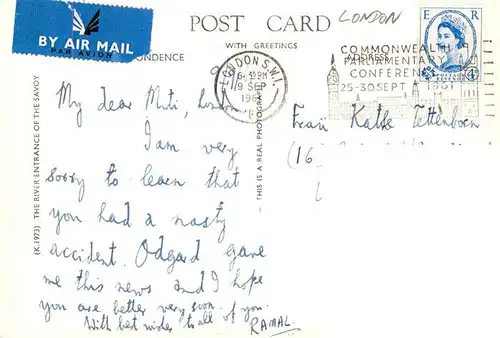 BY AIR MAIL
PAR AVION
POST CARD
LONDON
WITH GREETINGS
ADDRESS
E R
POSTAGE REVENUE
LONDON S.W.1.
9 SEP
1961
COMMONWEALTH
PARLIAMENTARY
CONFERENCE
25-30 SEPT 1961
RESPONDENCE
(K.1973) THE RIVER ENTRANCE OF THE SAVOY
THIS IS A REAL PHOTOGRAPH
My dear London
I am very
sorry to learn that
you had a nasty
accident. Odgard gave
me this news and I hope
you are better very soon.
With best wishes to all of you.
RAMAL.
Frau Kathe Tettenborn
(16